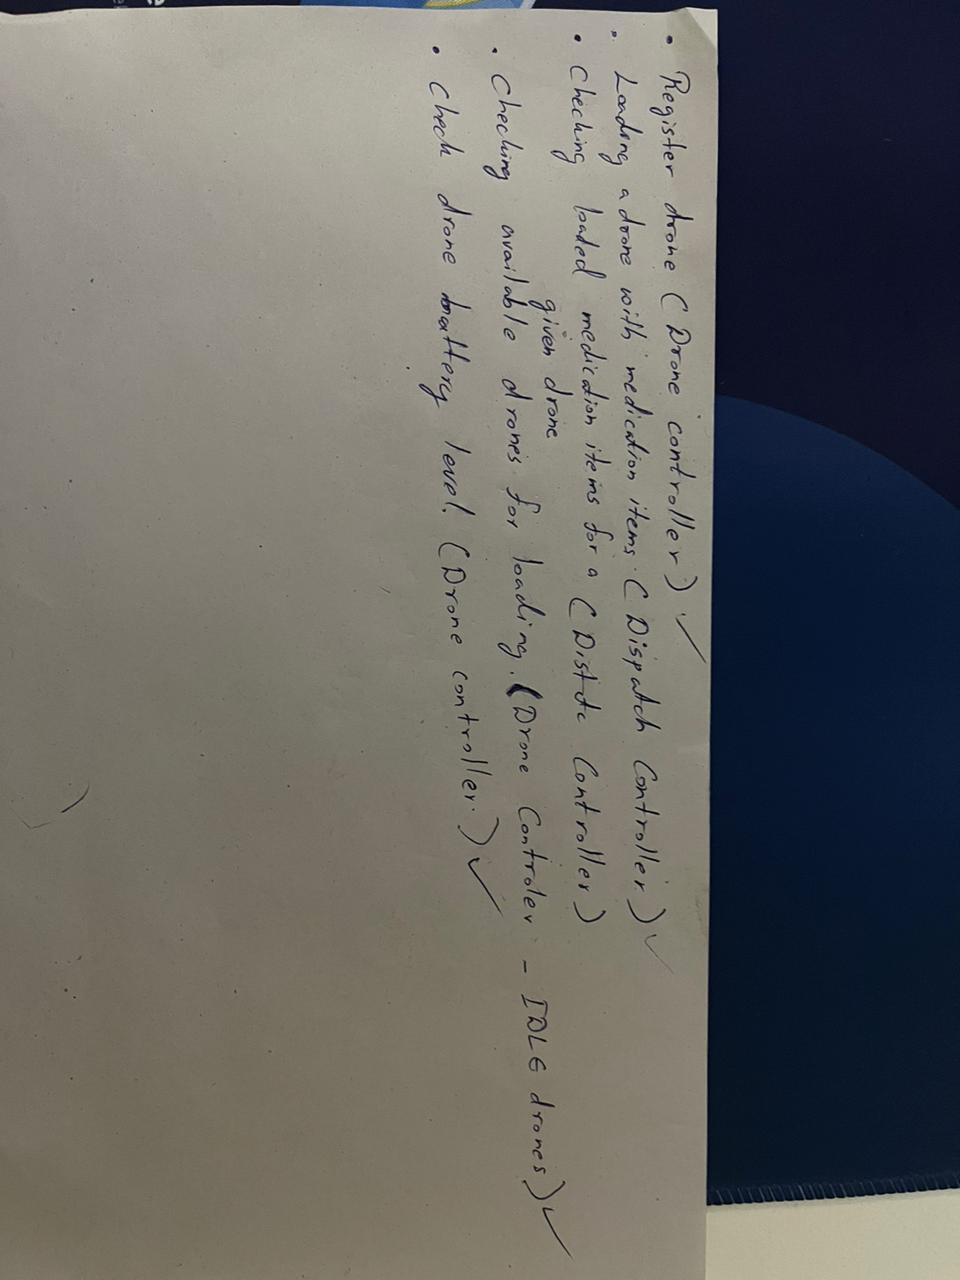 • Register drone ( Drone controller ) ✓
• Loading a drone with medication items. ( Dispatch Controller ) ✓
• checking loaded medication items for a ( Controller )
given drone
• checking available drones for loading. ( Drone Controler - IDLE drones ) ✓
• check drone battery level. ( Drone controller. ) ✓